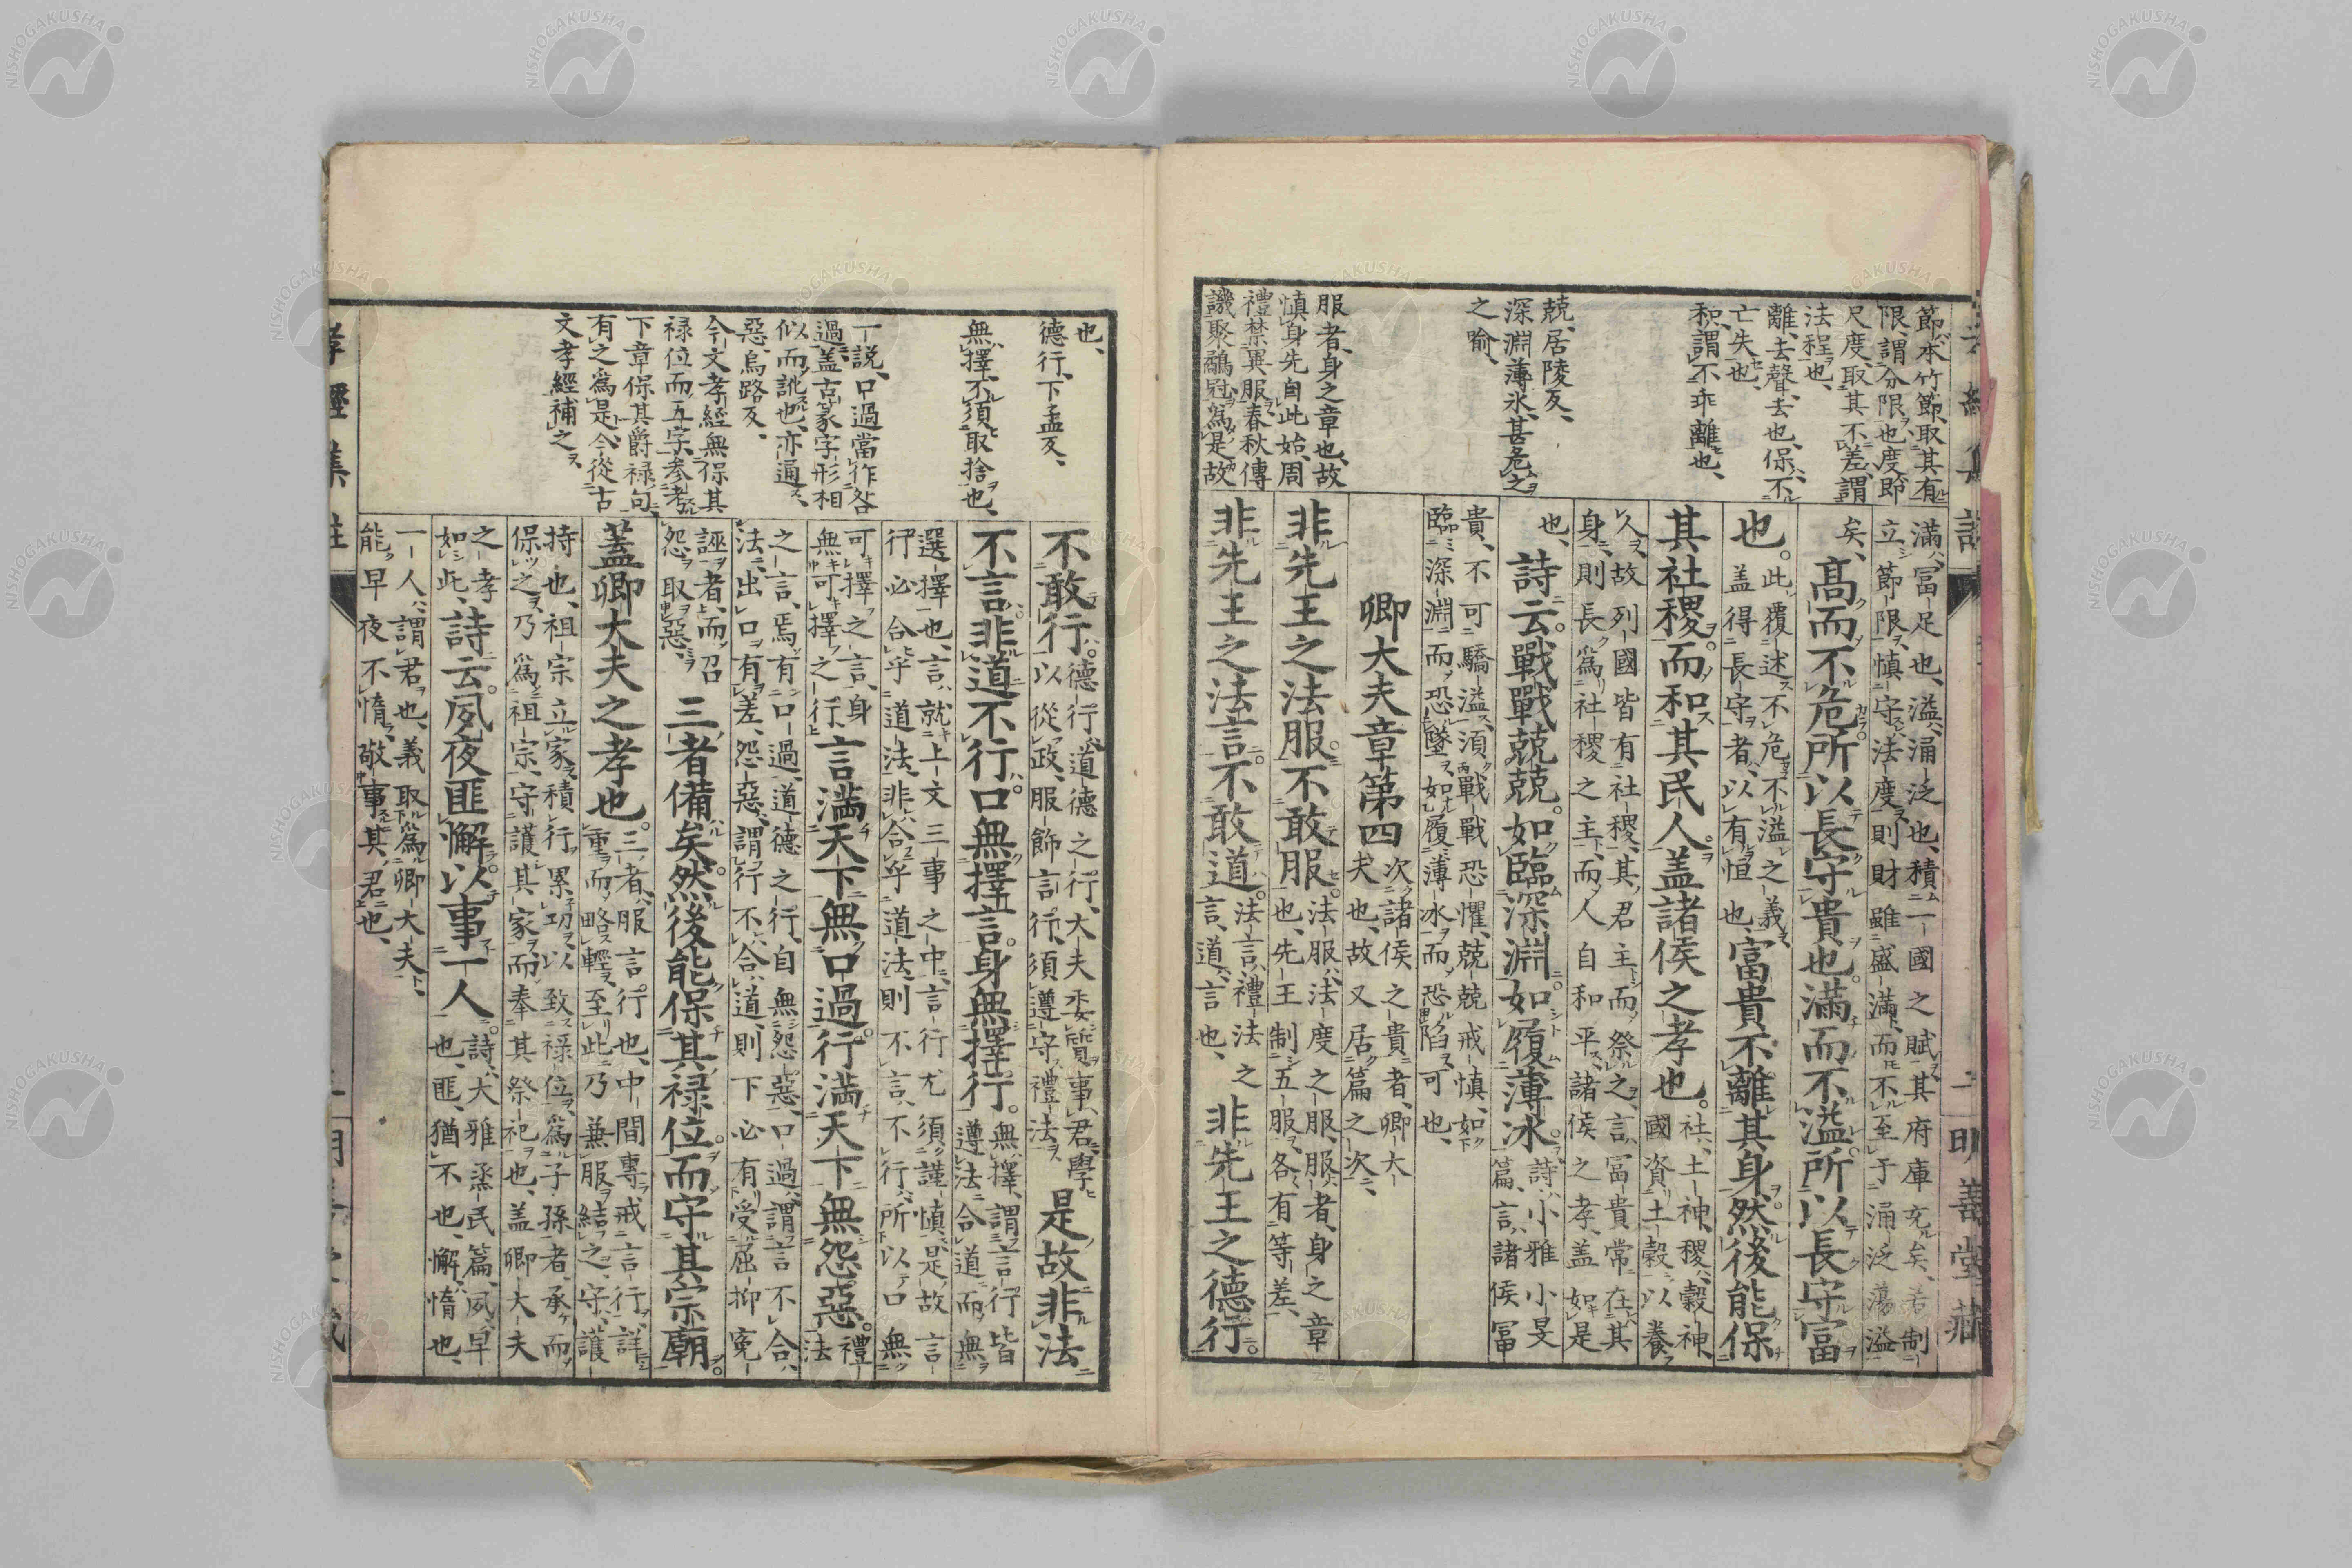 節、本竹節、取其有
限、謂分限也、度即
尺度、取其不差、謂
法程也、
離、去聲、去也、保、不
亡失也、
和、謂不乖離也、
兢、居陵反、
深淵薄氷、甚危之
之喩、
服者、身之章也、故
慎身先自此始、周
禮禁異服、春秋傳
譏聚鷸冠、爲是故
滿、冨足也、溢、涌泛也、積一國之賦、其府庫充矣、若制
立節限、慎守法度、則財雖盛滿、而不至于涌泛蕩溢
矣、高而不危。所以長守貴也。滿而不溢。所以長守富
也。此覆述不危不溢之義、
盖得長守者、以有恒也、富貴不離其身。然後能保
其社稷。而和其民人。盖諸侯之孝也。社、土神、稷、穀神、
國資土穀、以養
人、故列國皆有社稷、其君主而祭之、言冨貴常在其
身、則長爲社稷之主、而人自和平、諸侯之孝、盖如是
也、詩云。戰戰兢兢。如臨深淵。如履薄氷。詩、小雅小旻
篇、言諸侯冨
貴、不可驕溢、須戰戰恐懼、兢兢戒慎、如
臨深淵、而恐墜、如履薄氷、而恐陷、可也、
卿大夫章第四次諸侯之貴者、卿大
夫也、故又居篇之次、
非先王之法服。不敢服。法服、法度之服、服者、身之章
也、先王制五服、各有等差、
非先王之法言。不敢道。法言、禮法之
言、道、言也、非先王之德行。
孝經集註
二
明善堂藏
也、
德行、下孟反、
無擇、不須取捨也、
一說、口過當作咎
過、盖古篆字形相
似而訛也、亦通、
惡、烏路反、
今文孝經無保其
禄位而五字、参考
下章保其爵禄句、
有之爲是、今從古
文孝經補之、
不敢行。德行、道德之行、大夫委質事君、學
以從政、服飾言行、須遵守禮法、是故非法
不言。非道不行。口無擇言。身無擇行。無擇、謂言行皆
遵法合道、而無
選擇也、言、就上文三事之中、言行尤須謹慎、是故言
行必合乎道法、非合乎道法、則不言、不行、所以口無
可擇之言、身
無可擇之行、言滿天下。無口過。行滿天下。無怨惡。禮
法
之言、焉有口過、道德之行、自無怨惡、口過、謂言不合
法、出口有差、怨惡、謂行不合道、則下必有受屈抑寃
誣者、而召
怨取惡、三者備矣。然後能保其禄位。而守其宗廟。
蓋卿大夫之孝也。三者、服言行也、中間專戒言行、詳
重而略輕、至此乃兼服結之、守、護
持也、祖宗立家、積行累功、以致禄位、爲子孫者、承而
保之、乃爲祖宗、守護其家、而奉其祭祀也、盖卿大夫
之孝
如此、詩云。夙夜匪懈。以事一人。詩、大雅烝民篇、夙、早
也、匪、猶不也、懈、惰也、
一人、謂君也、義取爲卿大夫、
能早夜不惰、敬事其君也、
孝經集註